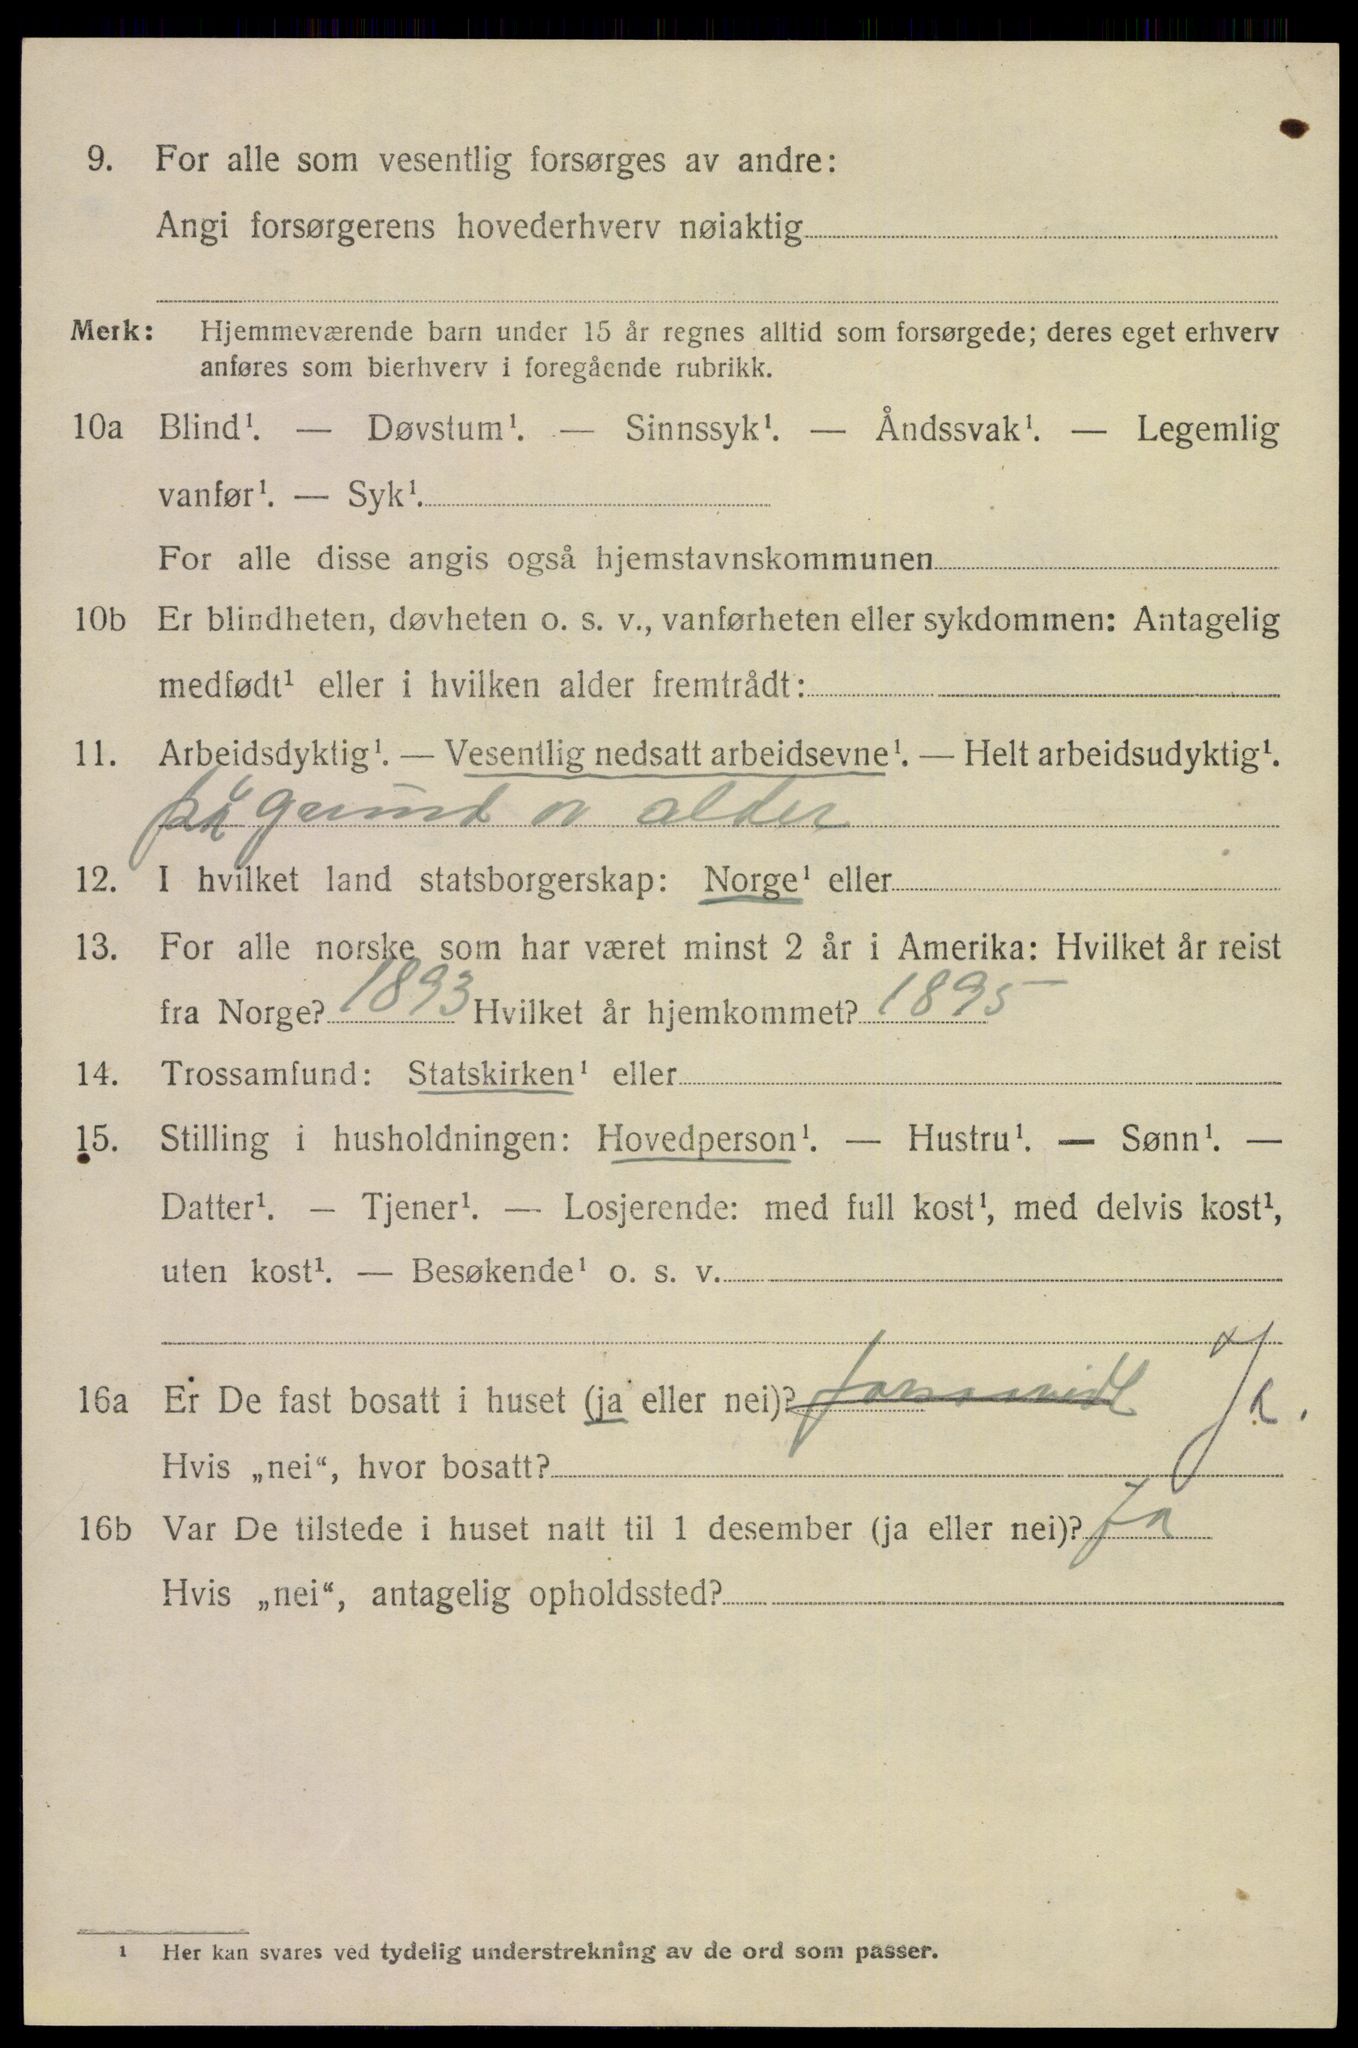 9. For alle som vesentlig forsørges av andre:
Angi forsørgerens hovederhverv nøiaktig
Merk: Hjemmeværende barn under 15 år regnes alltid som forsørgede; deres eget erhverv
anføres som bierhverv i foregående rubrikk.
10a Blind¹. — Døvstum¹. — Sinnssyk¹. — Åndssvak¹. — Legemlig
vanfør¹. — Syk¹.
For alle disse angis også hjemstavnskommunen
10b Er blindheten, døvheten o. s. v., vanførheten eller sykdommen: Antagelig
medfødt¹ eller i hvilken alder fremtrådt:
11. Arbeidsdyktig¹. — Vesentlig nedsatt arbeidsevne¹. — Helt arbeidsudyktig¹.
på grund av alder
12. I hvilket land statsborgerskap: Norge¹ eller
13. For alle norske som har været minst 2 år i Amerika: Hvilket år reist
fra Norge? 1893 Hvilket år hjemkommet? 1895
14. Trossamfund: Statskirken¹ eller
15. Stilling i husholdningen: Hovedperson¹. — Hustru¹. — Sønn¹. —
Datter¹. — Tjener¹. — Losjerende: med full kost¹, med delvis kost¹,
uten kost¹. — Besøkende¹ o. s. v.
16a Er De fast bosatt i huset (ja eller nei)? Ja.
Hvis „nei“, hvor bosatt?
16b Var De tilstede i huset natt til 1 desember (ja eller nei)? Ja
Hvis „nei“, antagelig opholdssted?
¹ Her kan svares ved tydelig understrekning av de ord som passer.